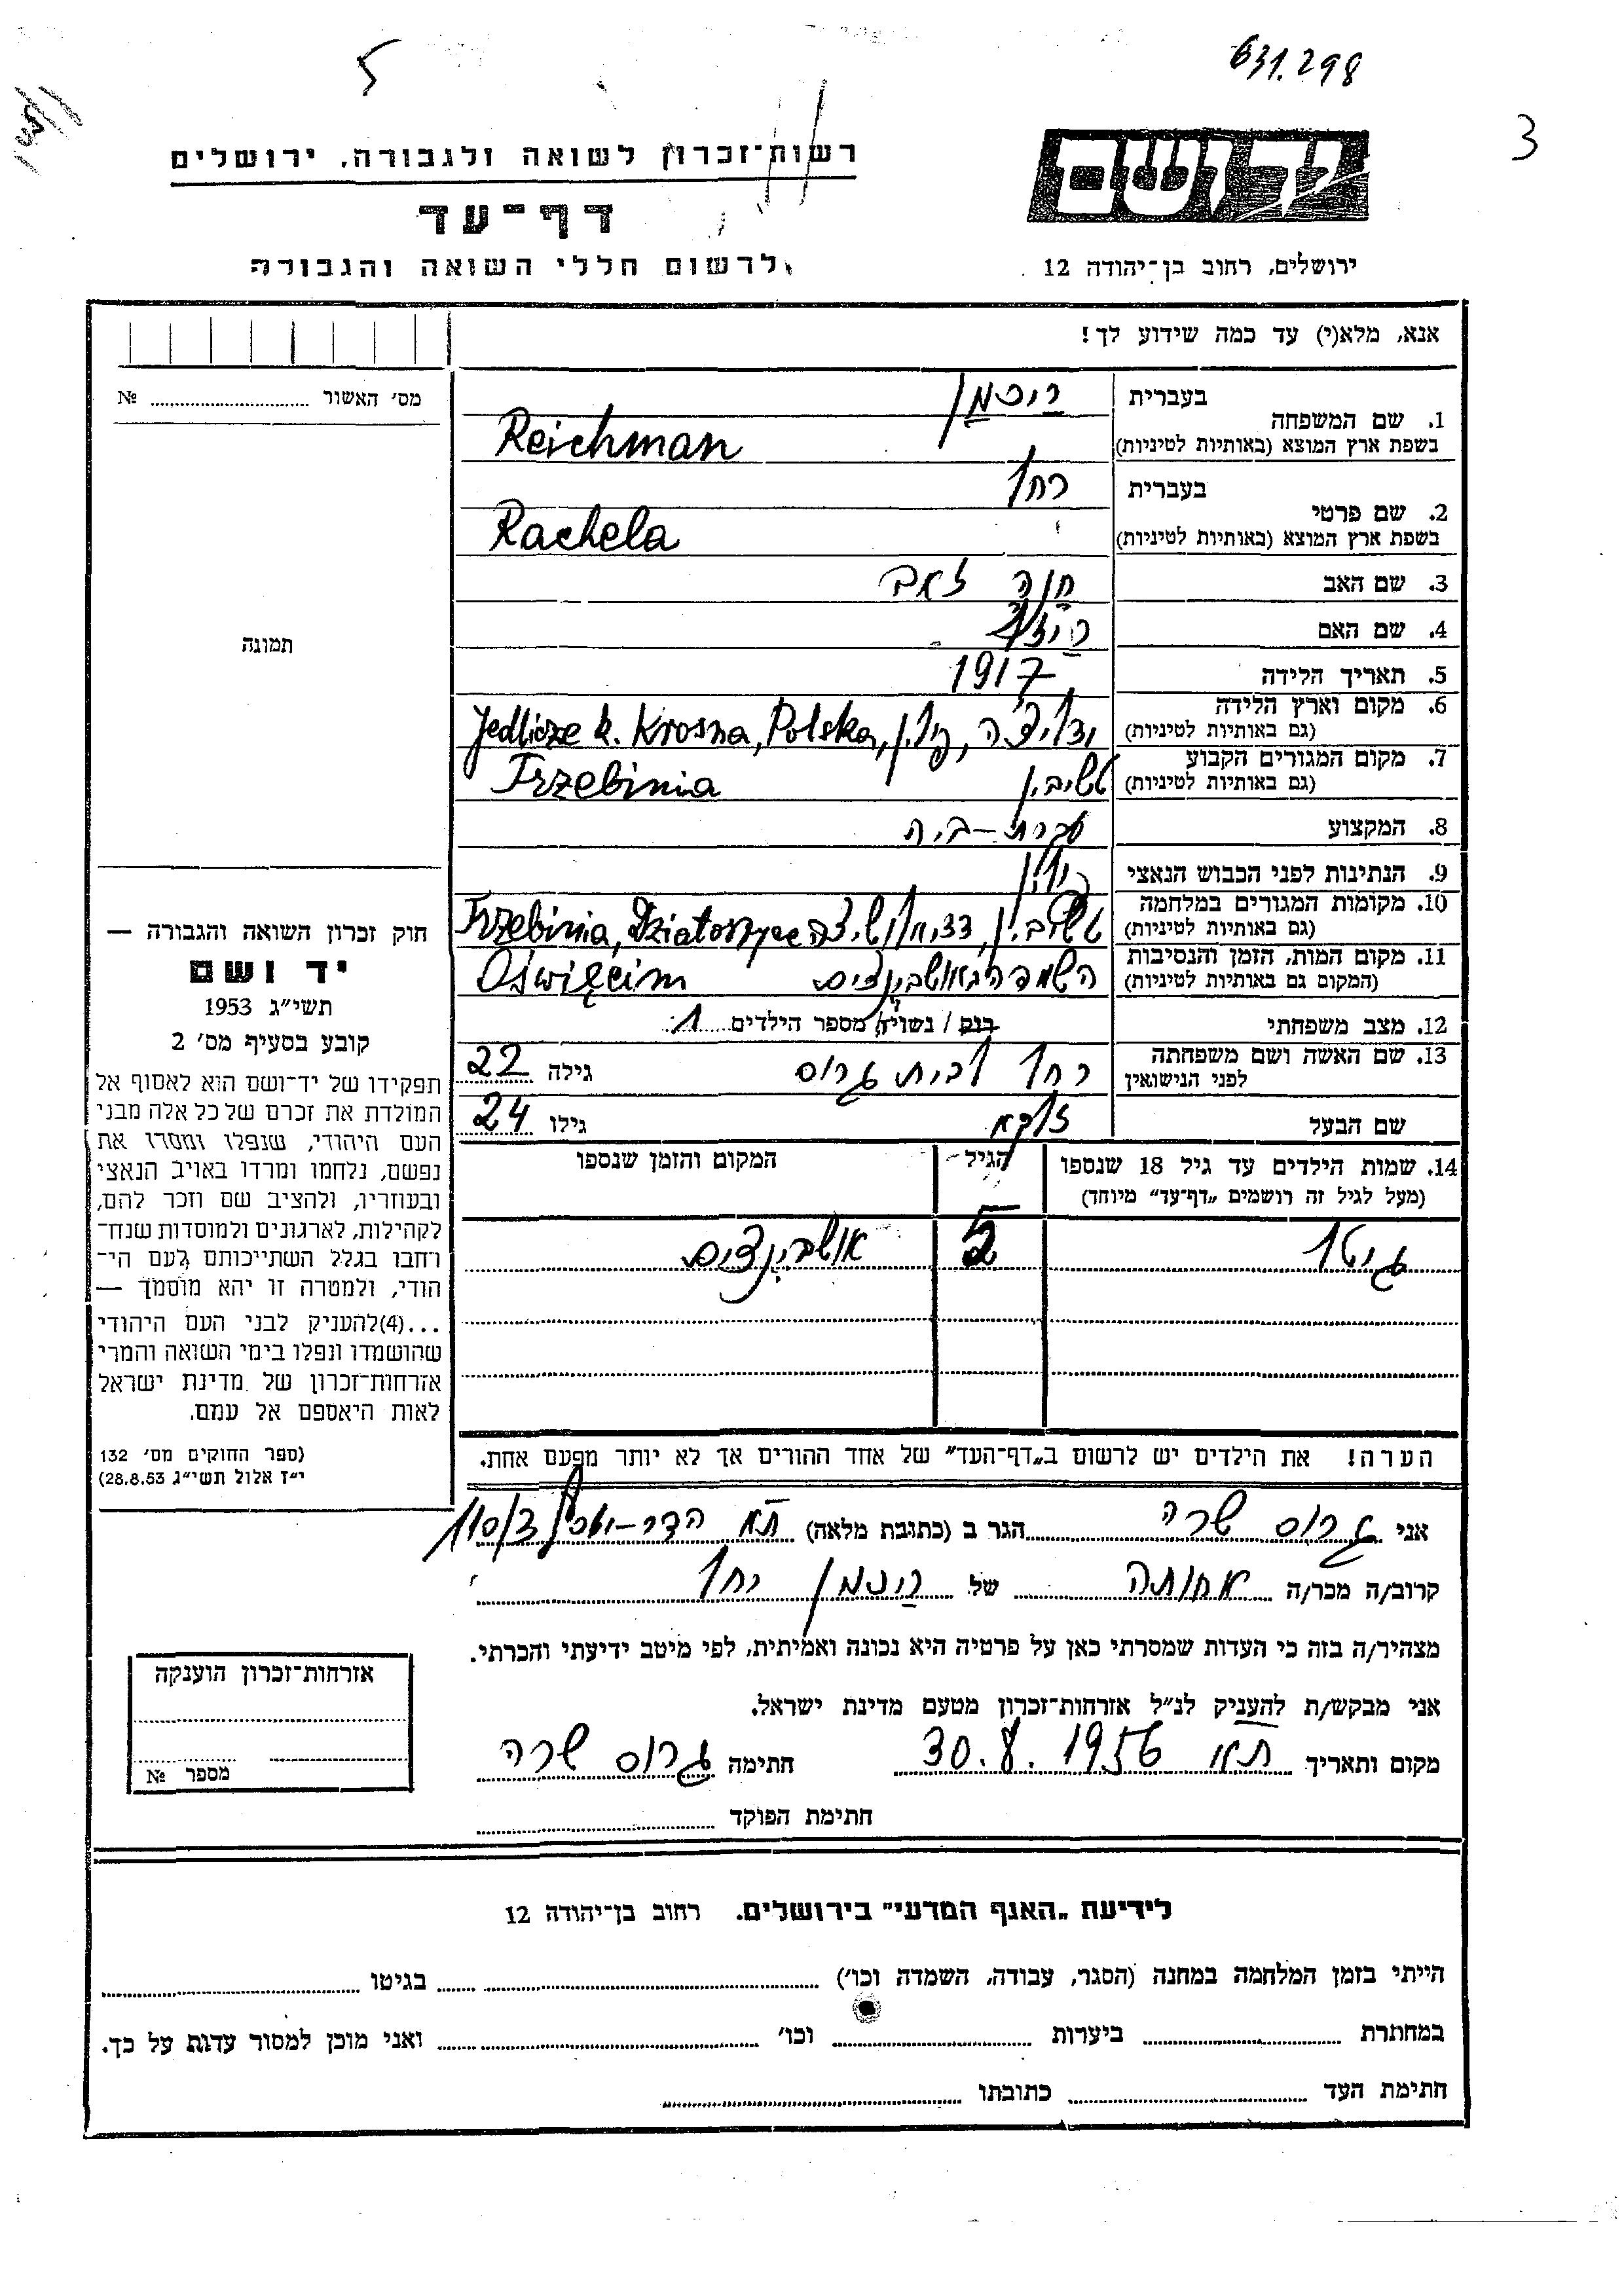 631.298
5
3
רשות־זכרון לשואה ולגבורה, ירושלים
ידושם
דף־עד
לרשום חללי השואה והגבורה
ירושלים, רחוב בן־יהודה 12
אנא, מלא(י) עד כמה שידוע לך!
מס׳ האשור № 
1. שם המשפחה
בעברית רייכמן
בשפת ארץ המוצא (באותיות לטיניות) Reichman
2. שם פרטי
בעברית רחל
בשפת ארץ המוצא (באותיות לטיניות) Rachela
3. שם האב חנה זאב
4. שם האם
5. תאריך הלידה 1917
6. מקום וארץ הלידה
(גם באותיות לטיניות) פולין, Jedlicze k. Krosna, Polska,
7. מקום המגורים הקבוע
(גם באותיות לטיניות) טשיבין Trzebinia
8. המקצוע עקרת־בית
9. הנתינות לפני הכבוש הנאצי פולין
10. מקומות המגורים במלחמה
(גם באותיות לטיניות) טשיבין, Trzebinia, Działoszyce
11. מקום המות, הזמן והנסיבות
(המקום גם באותיות לטיניות) השמדה Oświęcim
12. מצב משפחתי רוק / נשוי/ה מספר הילדים 1
13. שם האשה ושם משפחתה
לפני הנישואין רחל לבית גרוס גילה 22
שם הבעל גילו 24
14. שמות הילדים עד גיל 18 שנספו הגיל המקום והזמן שנספו
(מעל לגיל זה רושמים „דף־עד״ מיוחד)
גיטל 5 אושבינצים
הערה! את הילדים יש לרשום ב„דף־העד״ של אחד ההורים אך לא יותר מפעם אחת.
תמונה
חוק זכרון השואה והגבורה —
יד ושם
תשי״ג 1953
קובע בסעיף מס׳ 2
תפקידו של יד־ושם הוא לאסוף אל
המולדת את זכרם של כל אלה מבני
העם היהודי, שנפלו ומסרו את
נפשם, נלחמו ומרדו באויב הנאצי
ובעוזריו, ולהציב שם וזכר להם,
לקהילות, לארגונים ולמוסדות שנח־
רחבו בגלל השתייכותם לעם הי־
הודי, ולמטרה זו יהא מוסמך —
...(4)להעניק לבני העם היהודי
שהושמדו ונפלו בימי השואה והמרי
אזרחות־זכרון של מדינת ישראל
לאות היאספם אל עמם.
(ספר החוקים מס׳ 132
י״ז אלול תשי״ג 28.8.53)
אני גרוס שרה הגר ב (כתובת מלאה) ת״א הדר־יוסף 110/3
קרוב/ה מכר/ה אחותה של רייכמן רחל
מצהיר/ה בזה כי העדות שמסרתי כאן על פרטיה היא נכונה ואמיתית, לפי מיטב ידיעתי והכרתי.
אני מבקש/ת להעניק לנ״ל אזרחות־זכרון מטעם מדינת ישראל.
מקום ותאריך ת״א 30.8.1956 חתימה גרוס שרה
חתימת הפוקד
אזרחות־זכרון הוענקה
מספר №
לידיעת „האגף המדעי״ בירושלים. רחוב בן־יהודה 12
הייתי בזמן המלחמה במחנה (הסגר, עבודה, השמדה וכו׳) בגיטו
במחתרת ביערות וכו׳ ואני מוכן למסור עדות על כך.
חתימת העד כתובתו